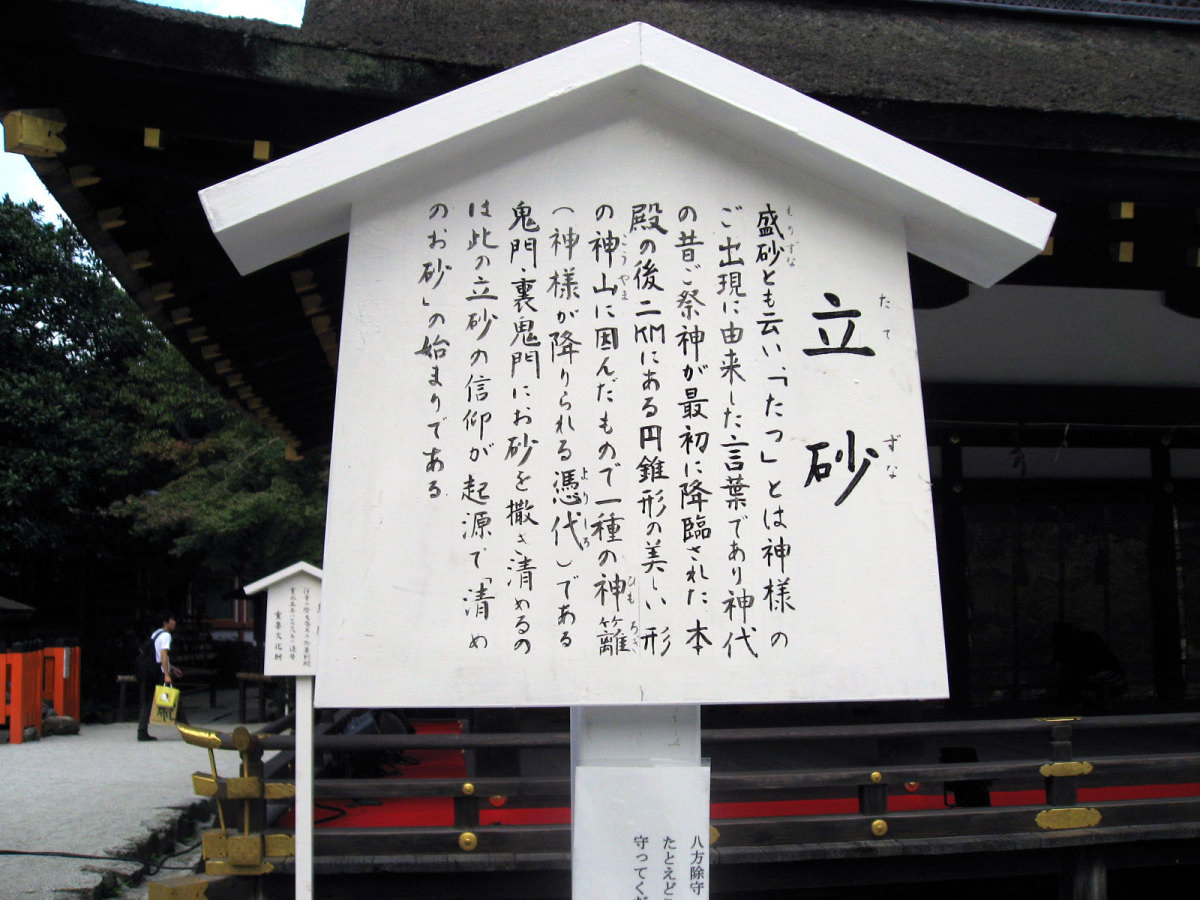 立砂
たてずな
盛砂とも云い、「たつ」とは神様の
もりずな
ご出現に由来した言葉であり神代
の昔ご祭神が最初に降臨された本
殿の後二KMにある円錐形の美しい形
の神山に因んだもので一種の神籬
こうやま
ひもろぎ
(神様が降りられる憑代)である
よりしろ
鬼門・裏鬼門にお砂を撒き清めるの
は此の立砂の信仰が起源で「清め
のお砂」の始まりである
重要文化財
八方除守
たとえど
守ってくだ